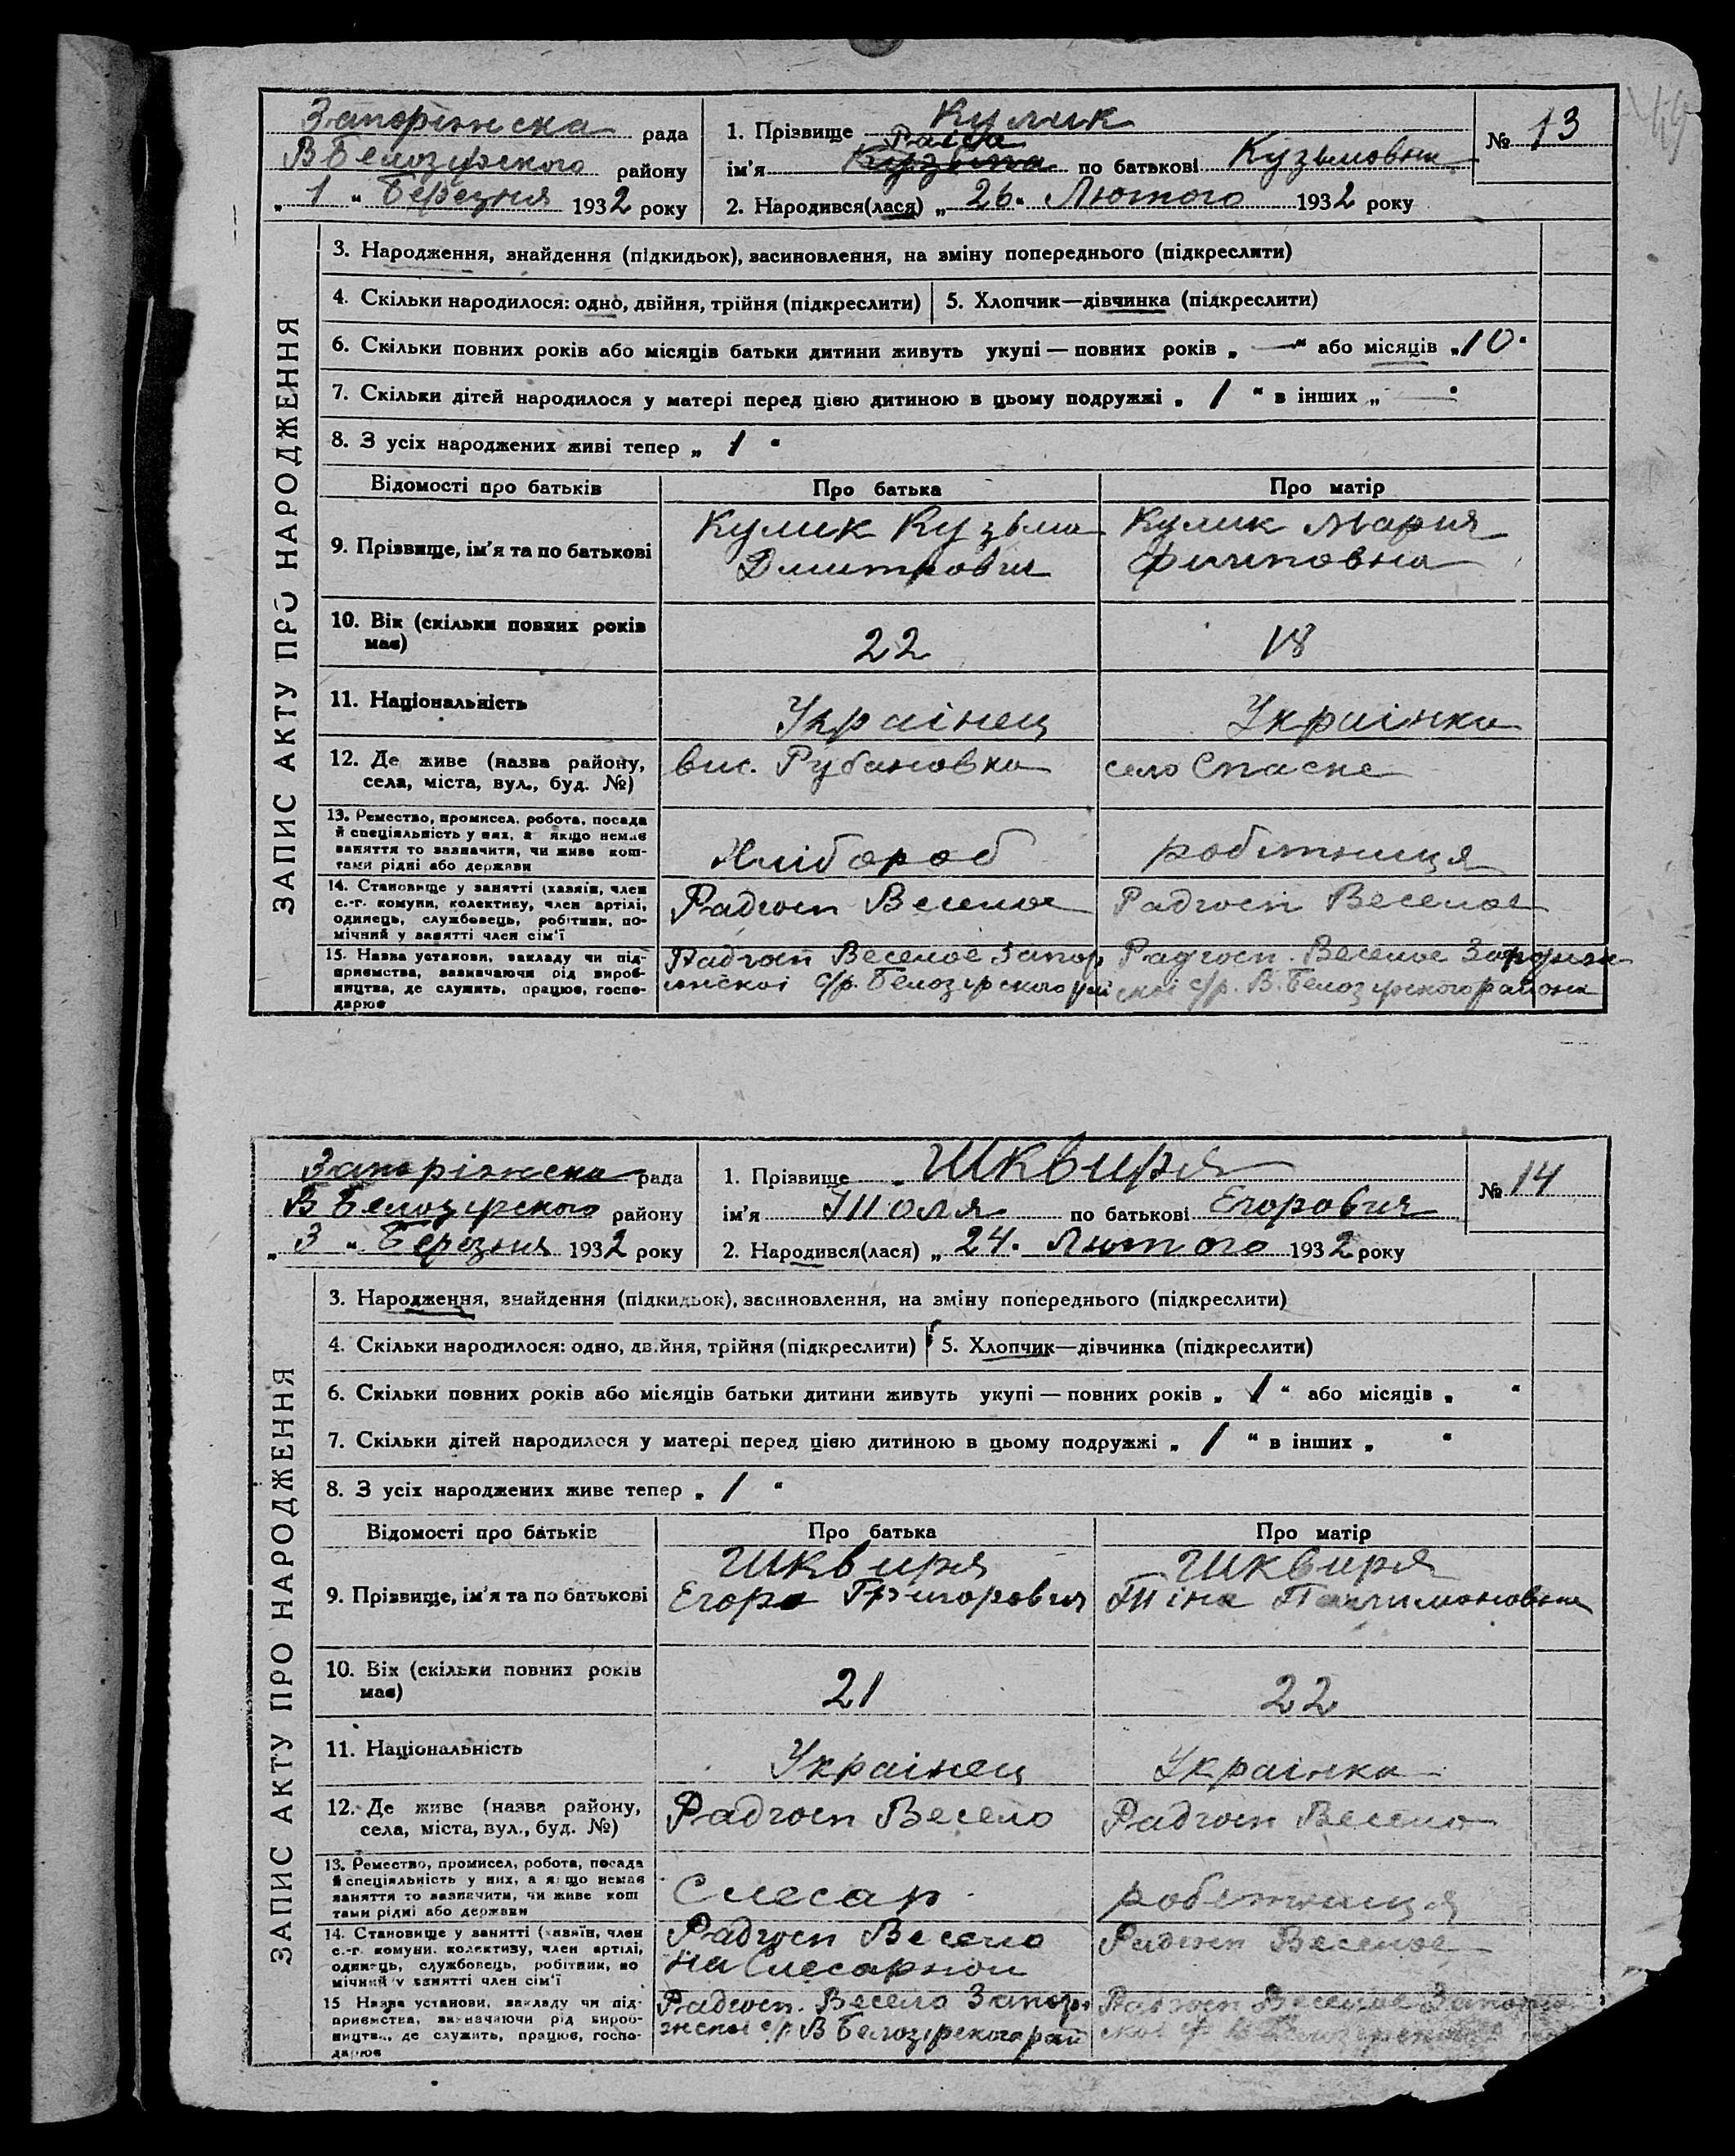 Запоріжска рада
В Белозірского району
„ 1 “ Березня 1932 року
1. Прізвище Кулик
Раиса
ім'я Кузьма по батькові Кузьмовна
2. Народився(лася) „ 26 “ Лютого 1932 року
№ 13
ЗАПИС АКТУ ПРО НАРОДЖЕННЯ
3. Народження, знайдення (підкидьок), засиновлення, на зміну попереднього (підкреслити)
4. Скільки народилося: одно, двійня, трійня (підкреслити) 5. Хлопчик—дівчинка (підкреслити)
6. Скільки повних років або місяців батьки дитини живуть укупі — повних років „ — “ або місяців „ 10 “
7. Скільки дітей народилося у матері перед цією дитиною в цьому подружжі „ 1 “ в інших „ — “
8. З усіх народжених живі тепер „ 1 “
Відомості про батьків Про батька Про матір
9. Прізвище, ім'я та по батькові
Кулик Кузьма
Дмитрович
Кулик Мария
Филиповна
10. Вік (скільки повних років
має)
22
18
11. Національність
Украінец
Украінка
12. Де живе (назва району,
села, міста, вул., буд. №)
вис. Рубановка
село Спасне
13. Ремество, промисел, робота, посада
й спеціяльність у них, а якщо немає
заняття то зазначити, чи живе кош-
тами рідні або держави
Хлібороб
робітниця
14. Становище у занятті (хазяїн, член
с.-г. комуни, колективу, член артілі,
одинець, службовець, робітник, по-
мічний у занятті член сім'ї
Радгосп Веселое
Радгосп Веселое
15. Назва установи, закладу чи під-
приємства, зазначаючи рід вироб-
ництва, де служить, працює, госпо-
дарює
Радгосп Веселое Запор
іжскоі с/р. Белозірского рай
Радгосп. Веселое Запоріж
скоі с/р. В. Белозірского района
Запоріжска рада
В Белозірского району
„ 3 “ Березня 1932 року
1. Прізвище Шквиря
ім'я Толя по батькові Егорович
2. Народився(лася) „ 24 “ Лютого 1932 року
№ 14
ЗАПИС АКТУ ПРО НАРОДЖЕННЯ
3. Народження, знайдення (підкидьок), засиновлення, на зміну попереднього (підкреслити)
4. Скільки народилося: одно, двійня, трійня (підкреслити) 5. Хлопчик—дівчинка (підкреслити)
6. Скільки повних років або місяців батьки дитини живуть укупі — повних років „ 1 “ або місяців „ “
7. Скільки дітей народилося у матері перед цією дитиною в цьому подружжі „ 1 “ в інших „ “
8. З усіх народжених живе тепер „ 1 “
Відомості про батьків Про батька Про матір
9. Прізвище, ім'я та по батькові
Шквиря
Егор Григорович
Шквиря
Тіна
10. Вік (скільки повних років
має)
21
22
11. Національність
Украінец
Украінка
12. Де живе (назва району,
села, міста, вул., буд. №)
Радгосп Весело
Радгосп Весело
13. Ремество, промисел, робота, посада
й спеціяльність у них, а якщо немає
заняття то зазначити, чи живе кош
тами рідні або держави
Слесар
робітниця
14. Становище у занятті (хазяїн, член
с.-г. комуни, колективу, член артілі,
одинець, службовець, робітник, по
мічний у занятті член сім'ї
Радгосп Весело
на Слесарной
Радгосп Веселое
15 Назва установи, закладу чи під-
приємства, зазначаючи рід вироб-
ництва, де служить, працює, госпо-
дарює
Радгосп. Весело Запорі
жскоі с/р В Белозірского рай
Радгосп Веселое
скоі с/р В Белозірского